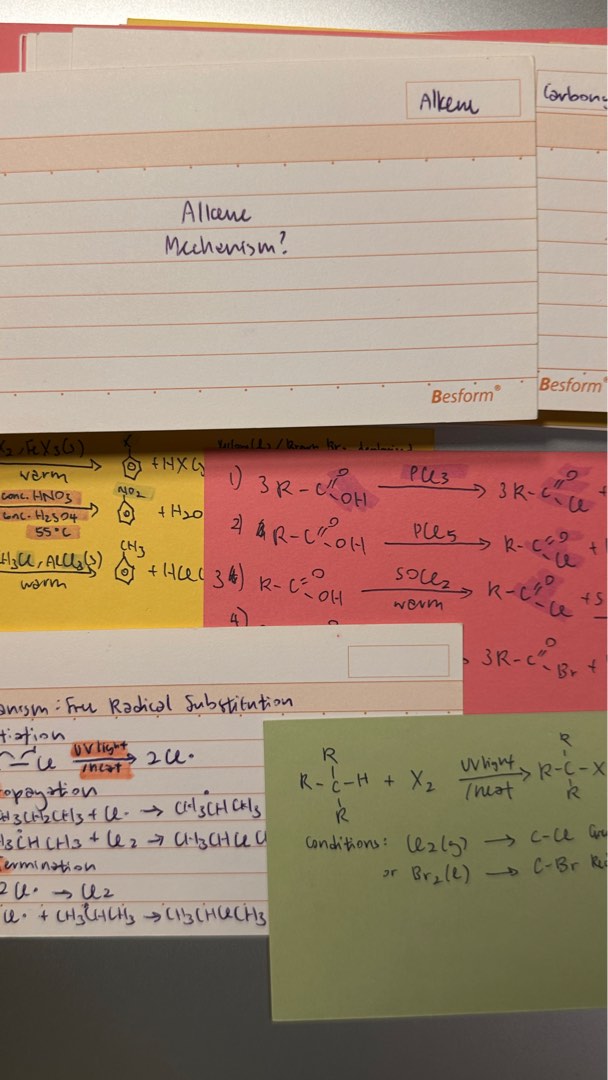 Alkene
Carbony
Alkene
Mechanism?
Besform®
Besform®
X2, FeX3(s)
warm
+ HX(
conc. HNO3
conc. H2SO4
55°C
NO2
+ H2O
H3Cl, AlCl3(s)
warm
CH3
+ HCl(
1) 3R-C(=O)OH PCl3 → 3R-C(=O)Cl +
2) R-C(=O)OH PCl5 → R-C(=O)Cl +
3) R-C(=O)OH SOCl2 warm → R-C(=O)Cl + S
4)
3R-C(=O)Br +
anism: Free Radical Substitution
tiation
Cl UV light /heat → 2Cl•
opagation
H3CH2CH3 + Cl• → CH3ĊHCH3
H3ĊHCH3 + Cl2 → CH3CHCl
ermination
2Cl• → Cl2
Cl• + CH3ĊHCH3 → CH3CHClCH3
R
R-C-H + X2 UV light /heat → R-C-X
R
R
R
Conditions: Cl2(g) → C-Cl
or Br2(l) → C-Br